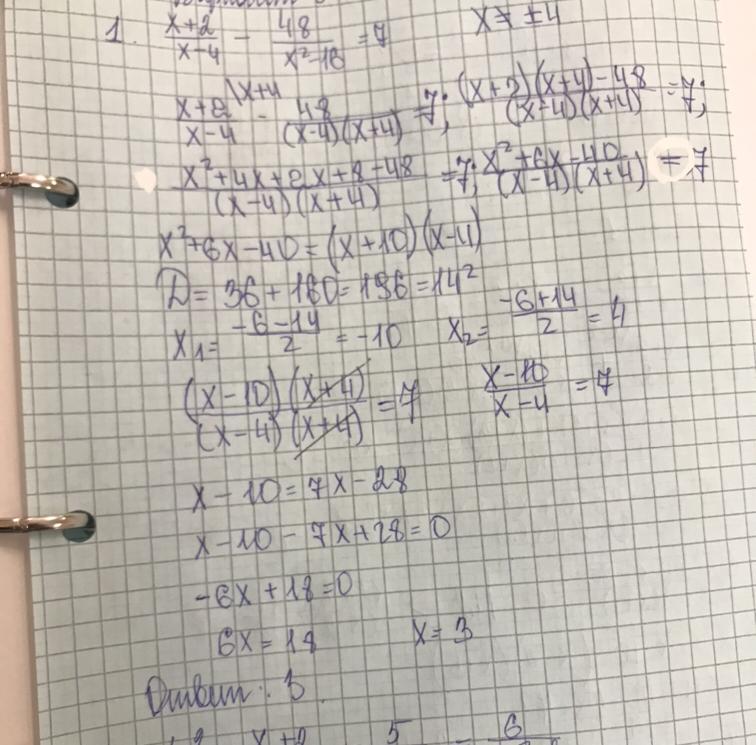 1. \frac{x+2}{x-4} - \frac{48}{x^2-16} = 7 x ≠ ±4
\frac{x+2}{x-4}^{\x+4} - \frac{48}{(x-4)(x+4)} = 7; \frac{(x+2)(x+4)-48}{(x-4)(x+4)} = 7;
\frac{x^2+4x+2x+8-48}{(x-4)(x+4)} = 7; \frac{x^2+6x-40}{(x-4)(x+4)} = 7
x^2+6x-40=(x+10)(x-4)
D = 36 + 160 = 196 = 14^2
x_1 = \frac{-6-14}{2} = -10 x_2 = \frac{-6+14}{2} = 4
\frac{(x-10)(x+4)}{(x-4)(x+4)} = 7 \frac{x-10}{x-4} = 7
x - 10 = 7x - 28
x - 10 - 7x + 28 = 0
-6x + 18 = 0
6x = 18 x = 3
Ответ: 3